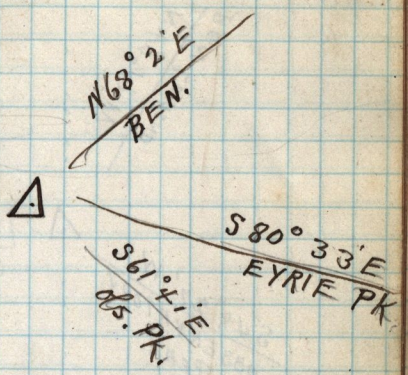 N68° 2' E
BEN.
S 80° 33' E
EYRIE PK.
S61° 41' E
Obs. PK.